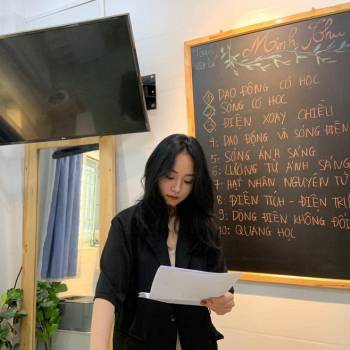 Toán
Lí
Minh Thu
1: DAO ĐỘNG CƠ HỌC
2: SÓNG CƠ HỌC
3: ĐIỆN XOAY CHIỀU
4: DAO ĐỘNG VÀ SÓNG ĐIỆN
5: SÓNG ÁNH SÁNG
6: LƯỢNG TỬ ÁNH SÁNG
7: HẠT NHÂN NGUYÊN TỬ
8: ĐIỆN TÍCH - ĐIỆN TRƯ
9: DÒNG ĐIỆN KHÔNG ĐỔI
10: QUANG HỌC